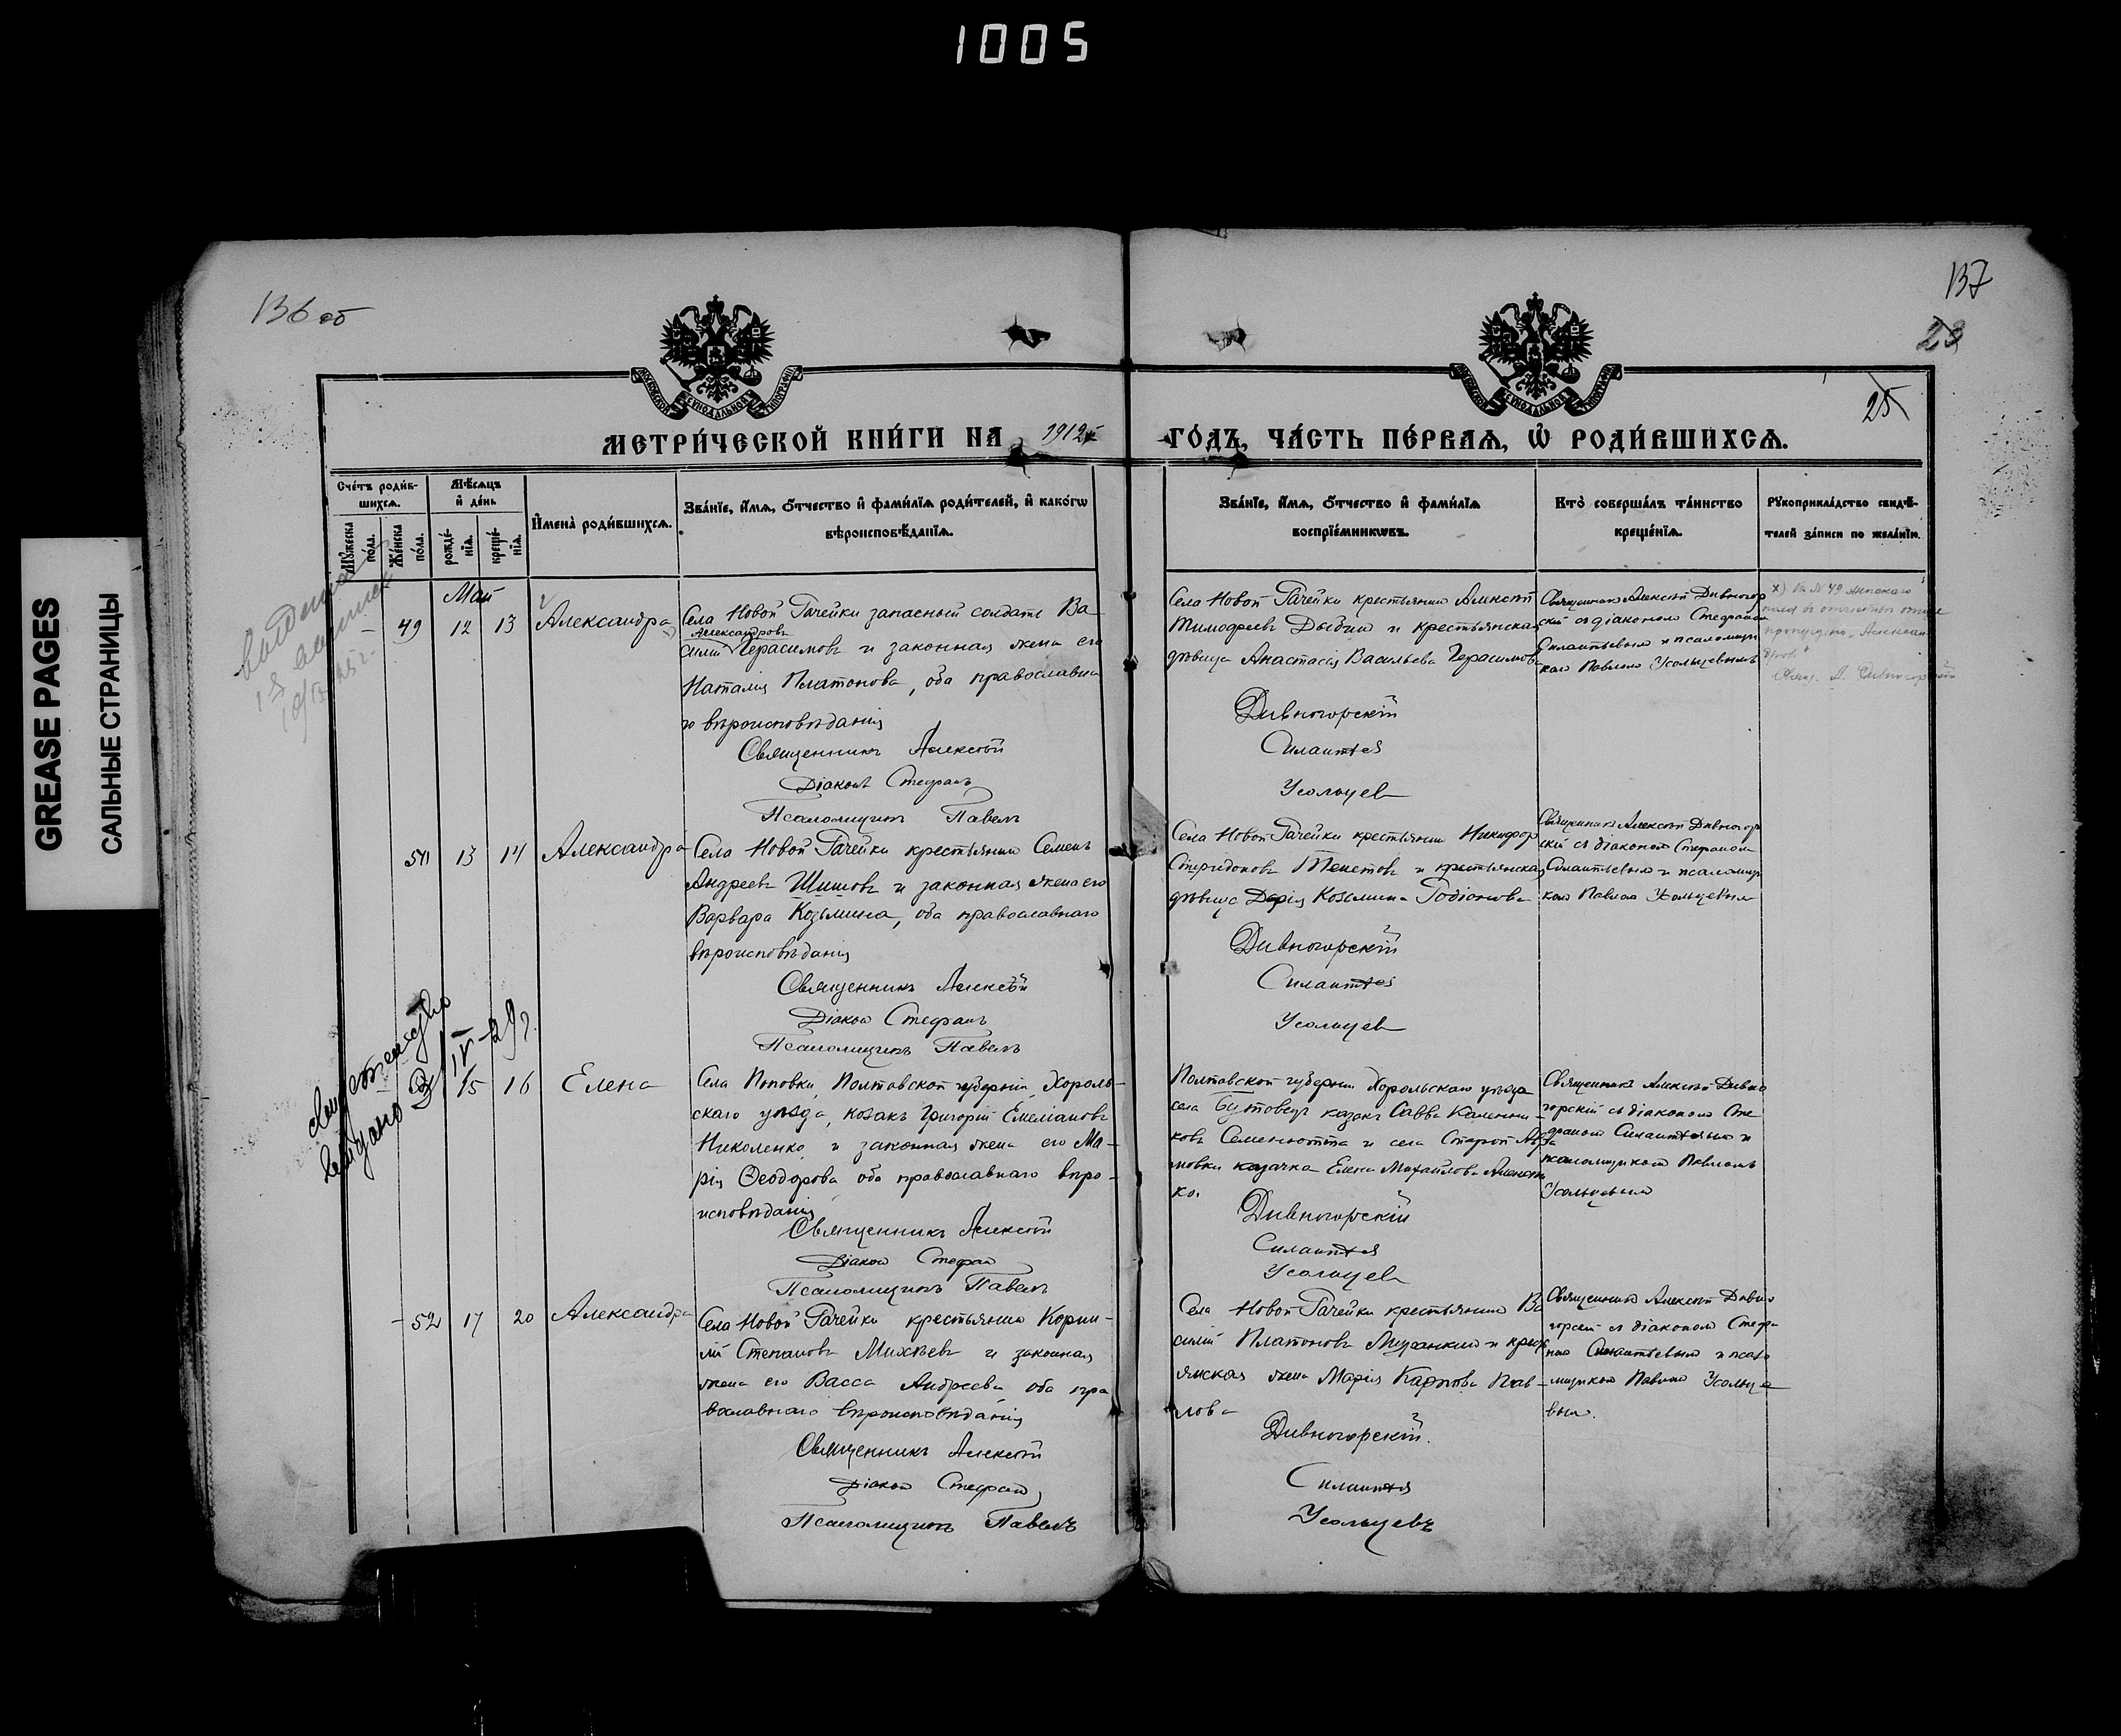 1005
GREASE PAGES
САЛЬНЫЕ СТРАНИЦЫ
136 об
137
23
25
МОСКОВСКОЙ СѴНОДАЛЬНОЙ ТИПОГРАФІИ
МОСКОВСКОЙ СѴНОДАЛЬНОЙ ТИПОГРАФІИ
МЕТРИ́ЧЕСКОЙ КНИ́ГИ НА 1912 ГО́ДЪ, ЧА́СТЬ ПЕ́РВАѦ, Ѡ РОДИ́ВШИХСѦ.
Сче́тъ роди́в-
шихсѧ.
Мꙋ́жеска
по́ла.
Же́нска
по́ла.
Мѣ́сѧцъ
и҆ де́нь
рожде́-
нїѧ.
креще́-
нїѧ.
И҆мена̀ роди́вшихсѧ.
Зва́нїе, и҆́мѧ, ѻ҆́тчество и҆ фами́лїѧ роди́телей, и҆ како́гѡ
вѣроисповѣ́данїѧ.
Зва́нїе, и҆́мѧ, ѻ҆́тчество и҆ фами́лїѧ
воспрїе́мникѡвъ.
Кто̀ соверша́лъ та́инство
креще́нїѧ.
Рꙋкоприкла́дство свидѣ́-
телей за́писи по жела́нїю.
Май
– 49 12 13 Александра
Села Новой Рачейки запасный солдатъ Ва-
Александровъ
силій Герасимовъ и законная жена его
Наталія Платонова, оба православна
го вѣроисповѣданія
Священникъ Алексѣй
Діаконъ Стефанъ
Псаломщикъ Павелъ
Села Новой Рачейки крестьянинъ Алексѣй
Тимофеевъ Дыдин и крестьянская
дѣвица Анастасія Васильева Герасимова
Дивногорскій
Силантьев
Усольцев
Священникъ Алексѣй Дивногор
скій съ діакономъ Стефаномъ
Силантьевымъ и псаломщи
комъ Павломъ Усольцевымъ
х) В № 49 женскаго
пола
пропущено „Александ
ровъ“
Свящ. А. Дивногорскій
50 13 14 Александра
Села Новой Рачейки крестьянинъ Семенъ
Андреевъ Шишовъ и законная жена его
Варвара Козьмина, оба православнаго
вѣроисповѣданія
Священникъ Алексѣй
Діакон Стефанъ
Псаломщикъ Павелъ
Села Новой Рачейки крестьянин Никифор
Спиридоновъ Тенетовъ и крестьянская
дѣвица Дарія Козьмина Родіонова
Дивногорскій
Силантьев
Усольцев
Священникъ Алексѣй Дивногор
скій съ діакономъ Стефаномъ
Силантьевымъ и псаломщи
комъ Павломъ Усольцевым
Свидетельство
выдано 3/IV-29 г.
15 16 Елена
Села Поповки, Полтавской губерніи, Хороль-
скаго уѣзда, козакъ Григорій Емеліановъ
Николенко и законная жена его Ма-
рія Ѳеодорова оба православнаго вѣро-
исповѣданія
Священникъ Алексѣй
Діакон Стефан
Псаломщикъ Павелъ
Полтавской губерніи Хорольскаго уѣзда
села казакъ Савва Каленни-
ковъ Семенютта и села Старой Ав
казачка Елена Михайлова
ко.
Дивногорскій
Силантьев
Усольцев
Священникъ Алексѣй Дивно
горскій съ діакономъ Сте
фаномъ Силантьевымъ и
псаломщикомъ Павломъ
Усольцевымъ
– 52 17 20 Александра
Села Новой Рачейки крестьянинъ Корни-
лій Степановъ Михѣевъ и законная
жена его Васса Андреева оба пра
вославнаго вѣроисповѣданія
Священникъ Алексѣй
Діакон Стефан
Псаломщикъ Павелъ
Села Новой Рачейки крестьянинъ Ва
силій Платоновъ и крест
янская жена Марія Карпова Пав-
лова
Дивногорскій.
Силантьев
Усольцевъ
Священникъ Алексѣй Дивно
горскій съ діакономъ Стефа
номъ Силантьевымъ и псало
мщикомъ Павломъ Усольце
вым.